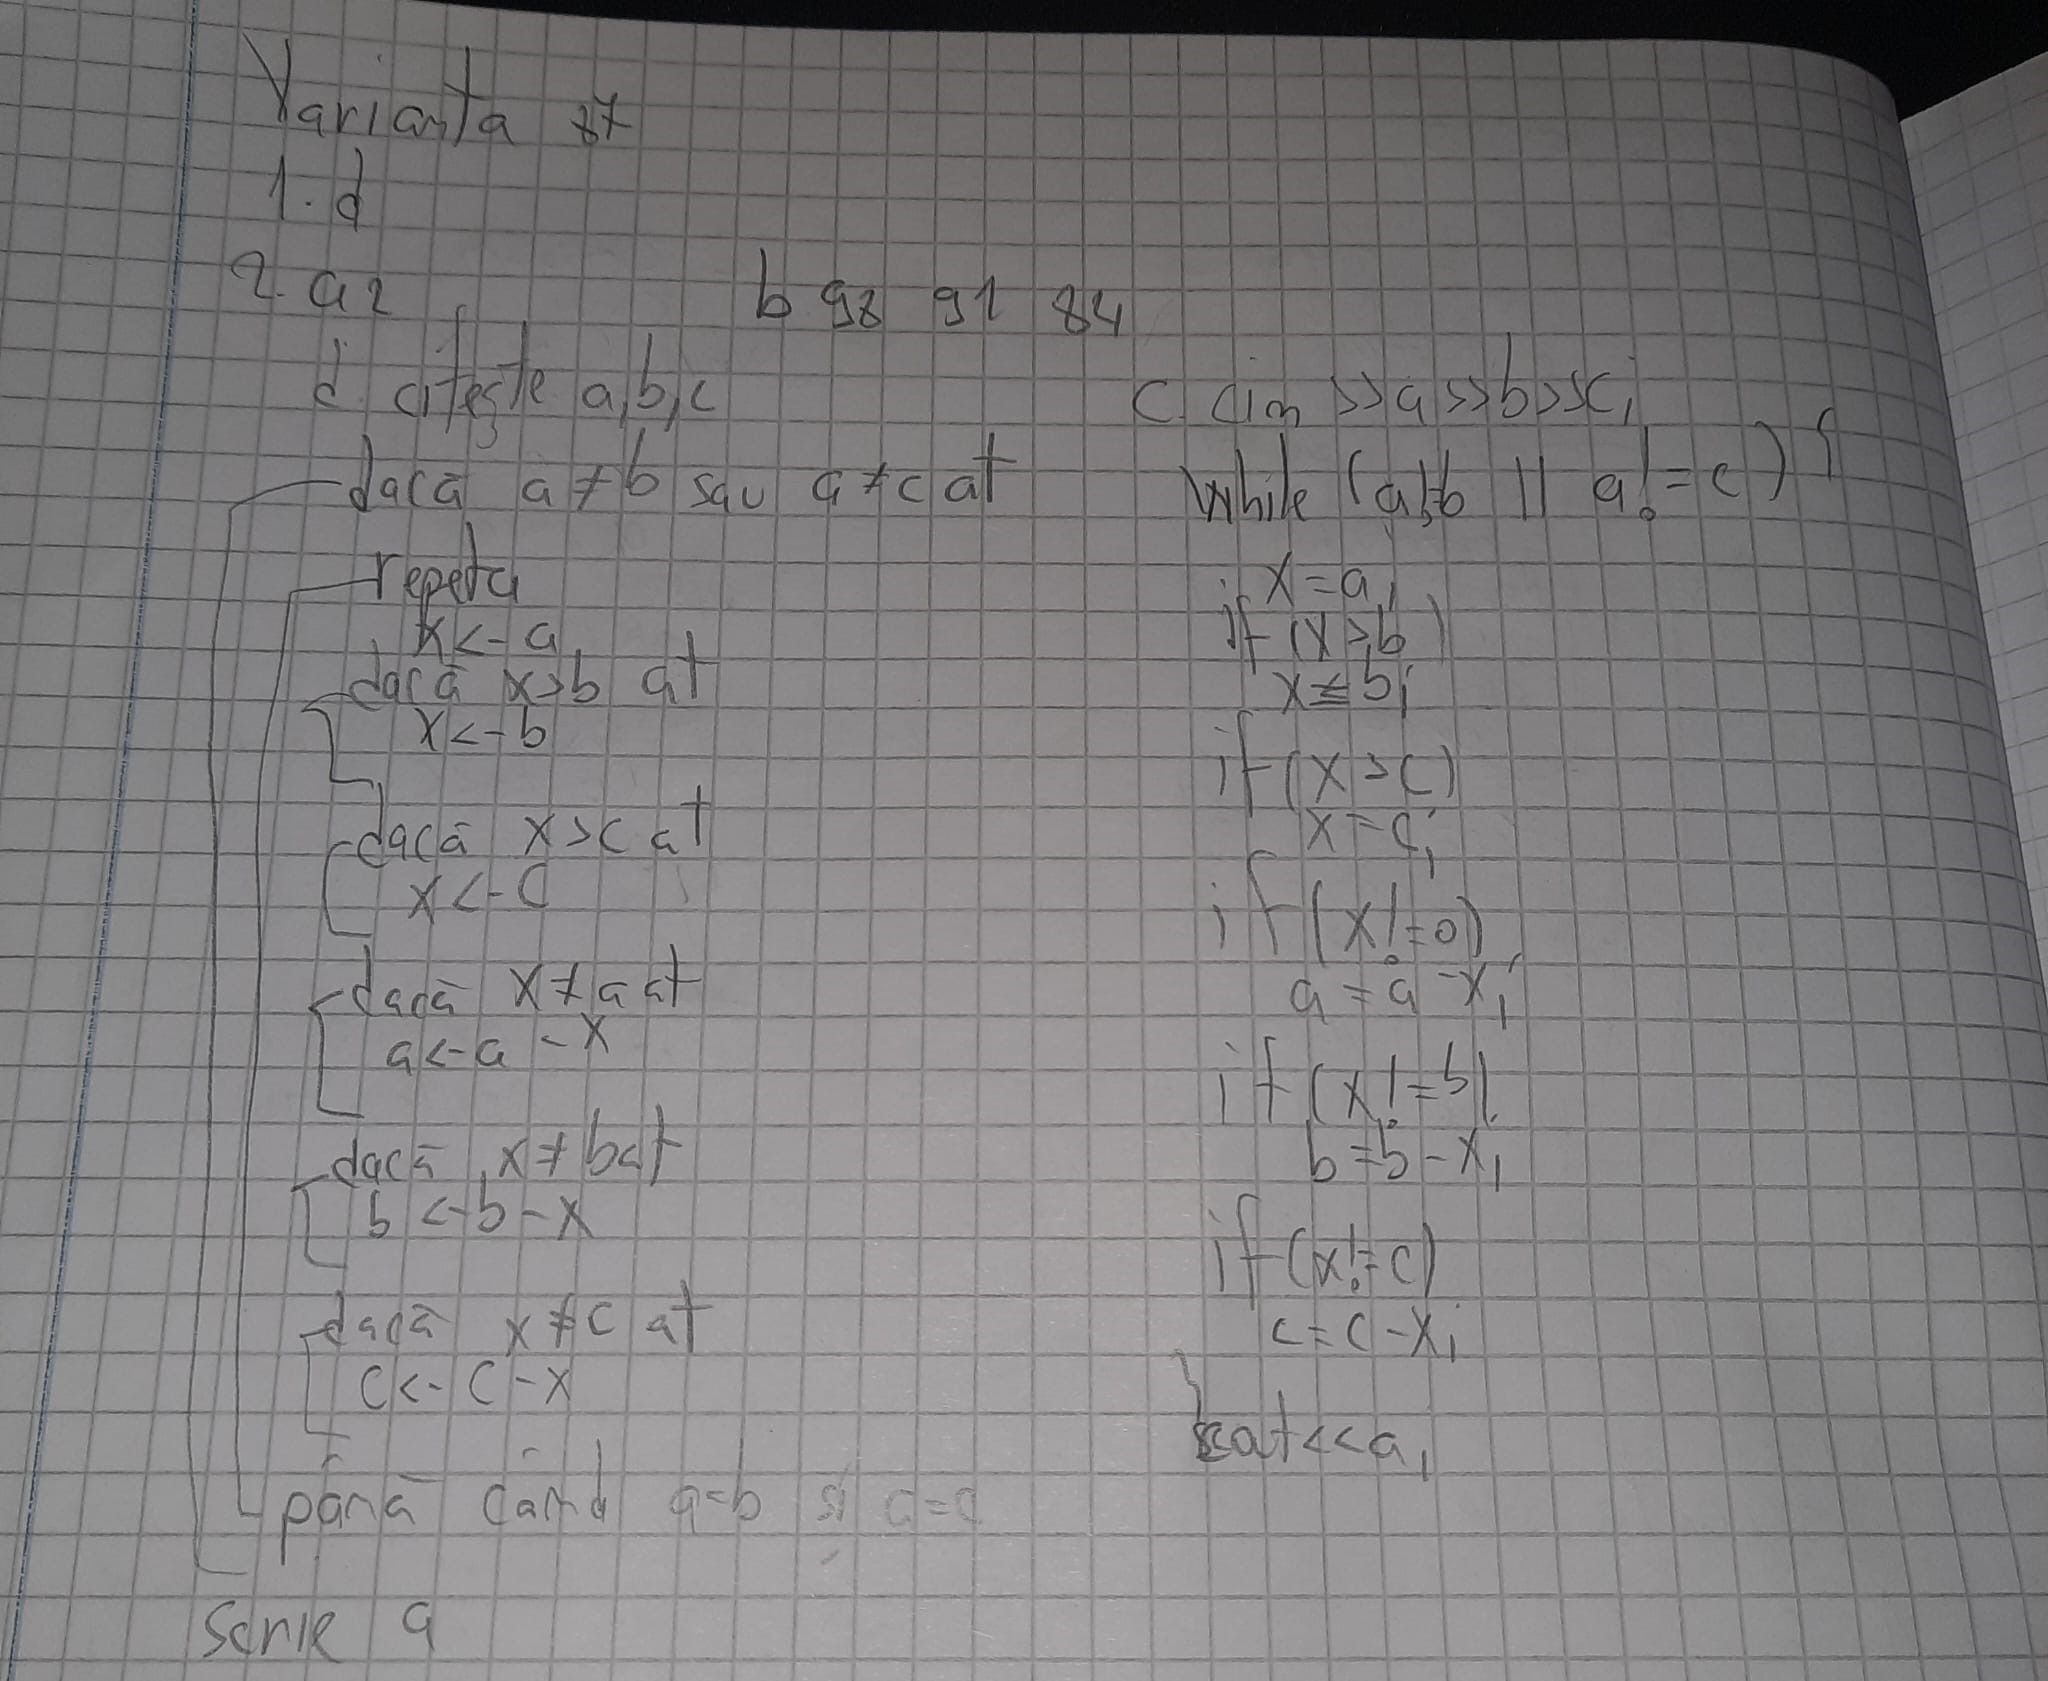 Varianta 87
1. d
2. a 2
b 98 91 84
d. citește a,b,c
dacă a≠b sau a≠c at
repetă
x<-a
dacă x>b at
x<-b
dacă x>c at
x<-c
dacă x≠a at
a<-a-x
dacă x≠b at
b<-b-x
dacă x≠c at
c<-c-x
până când a=b și a=c
scrie a
c. cin >>a>>b>>c;
while (a!=b || a!=c) {
x=a;
if (x>b)
x=b;
if (x>c)
x=c;
if (x!=0)
a=a-x;
if (x!=b)
b=b-x;
if (x!=c)
c=c-x;
}
cout<<a;